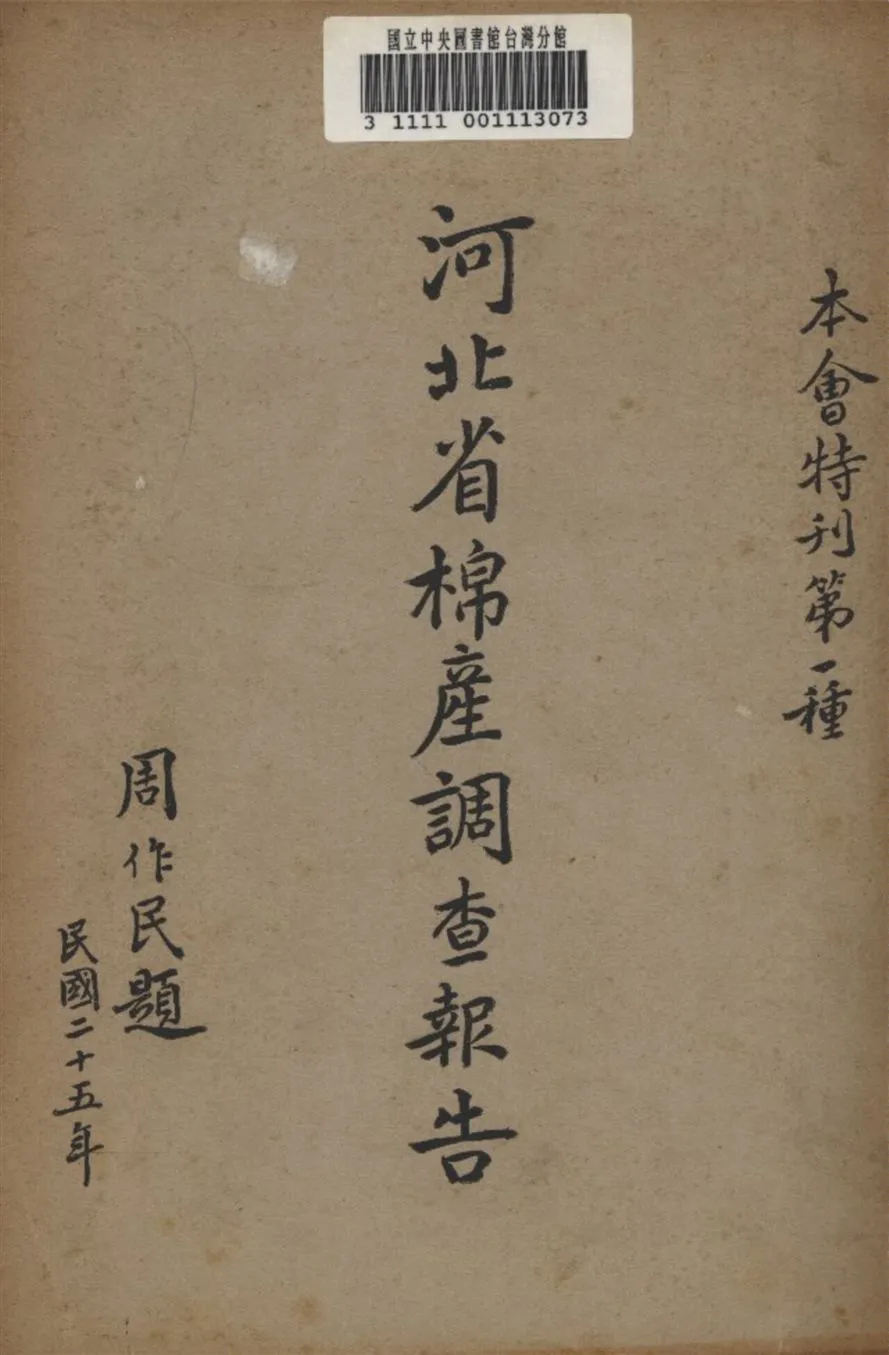 國立中央圖書館台灣分館
3 1111 001113073
本會特刊第一種
河北省棉產調查報告
周作民題
民國二十五年